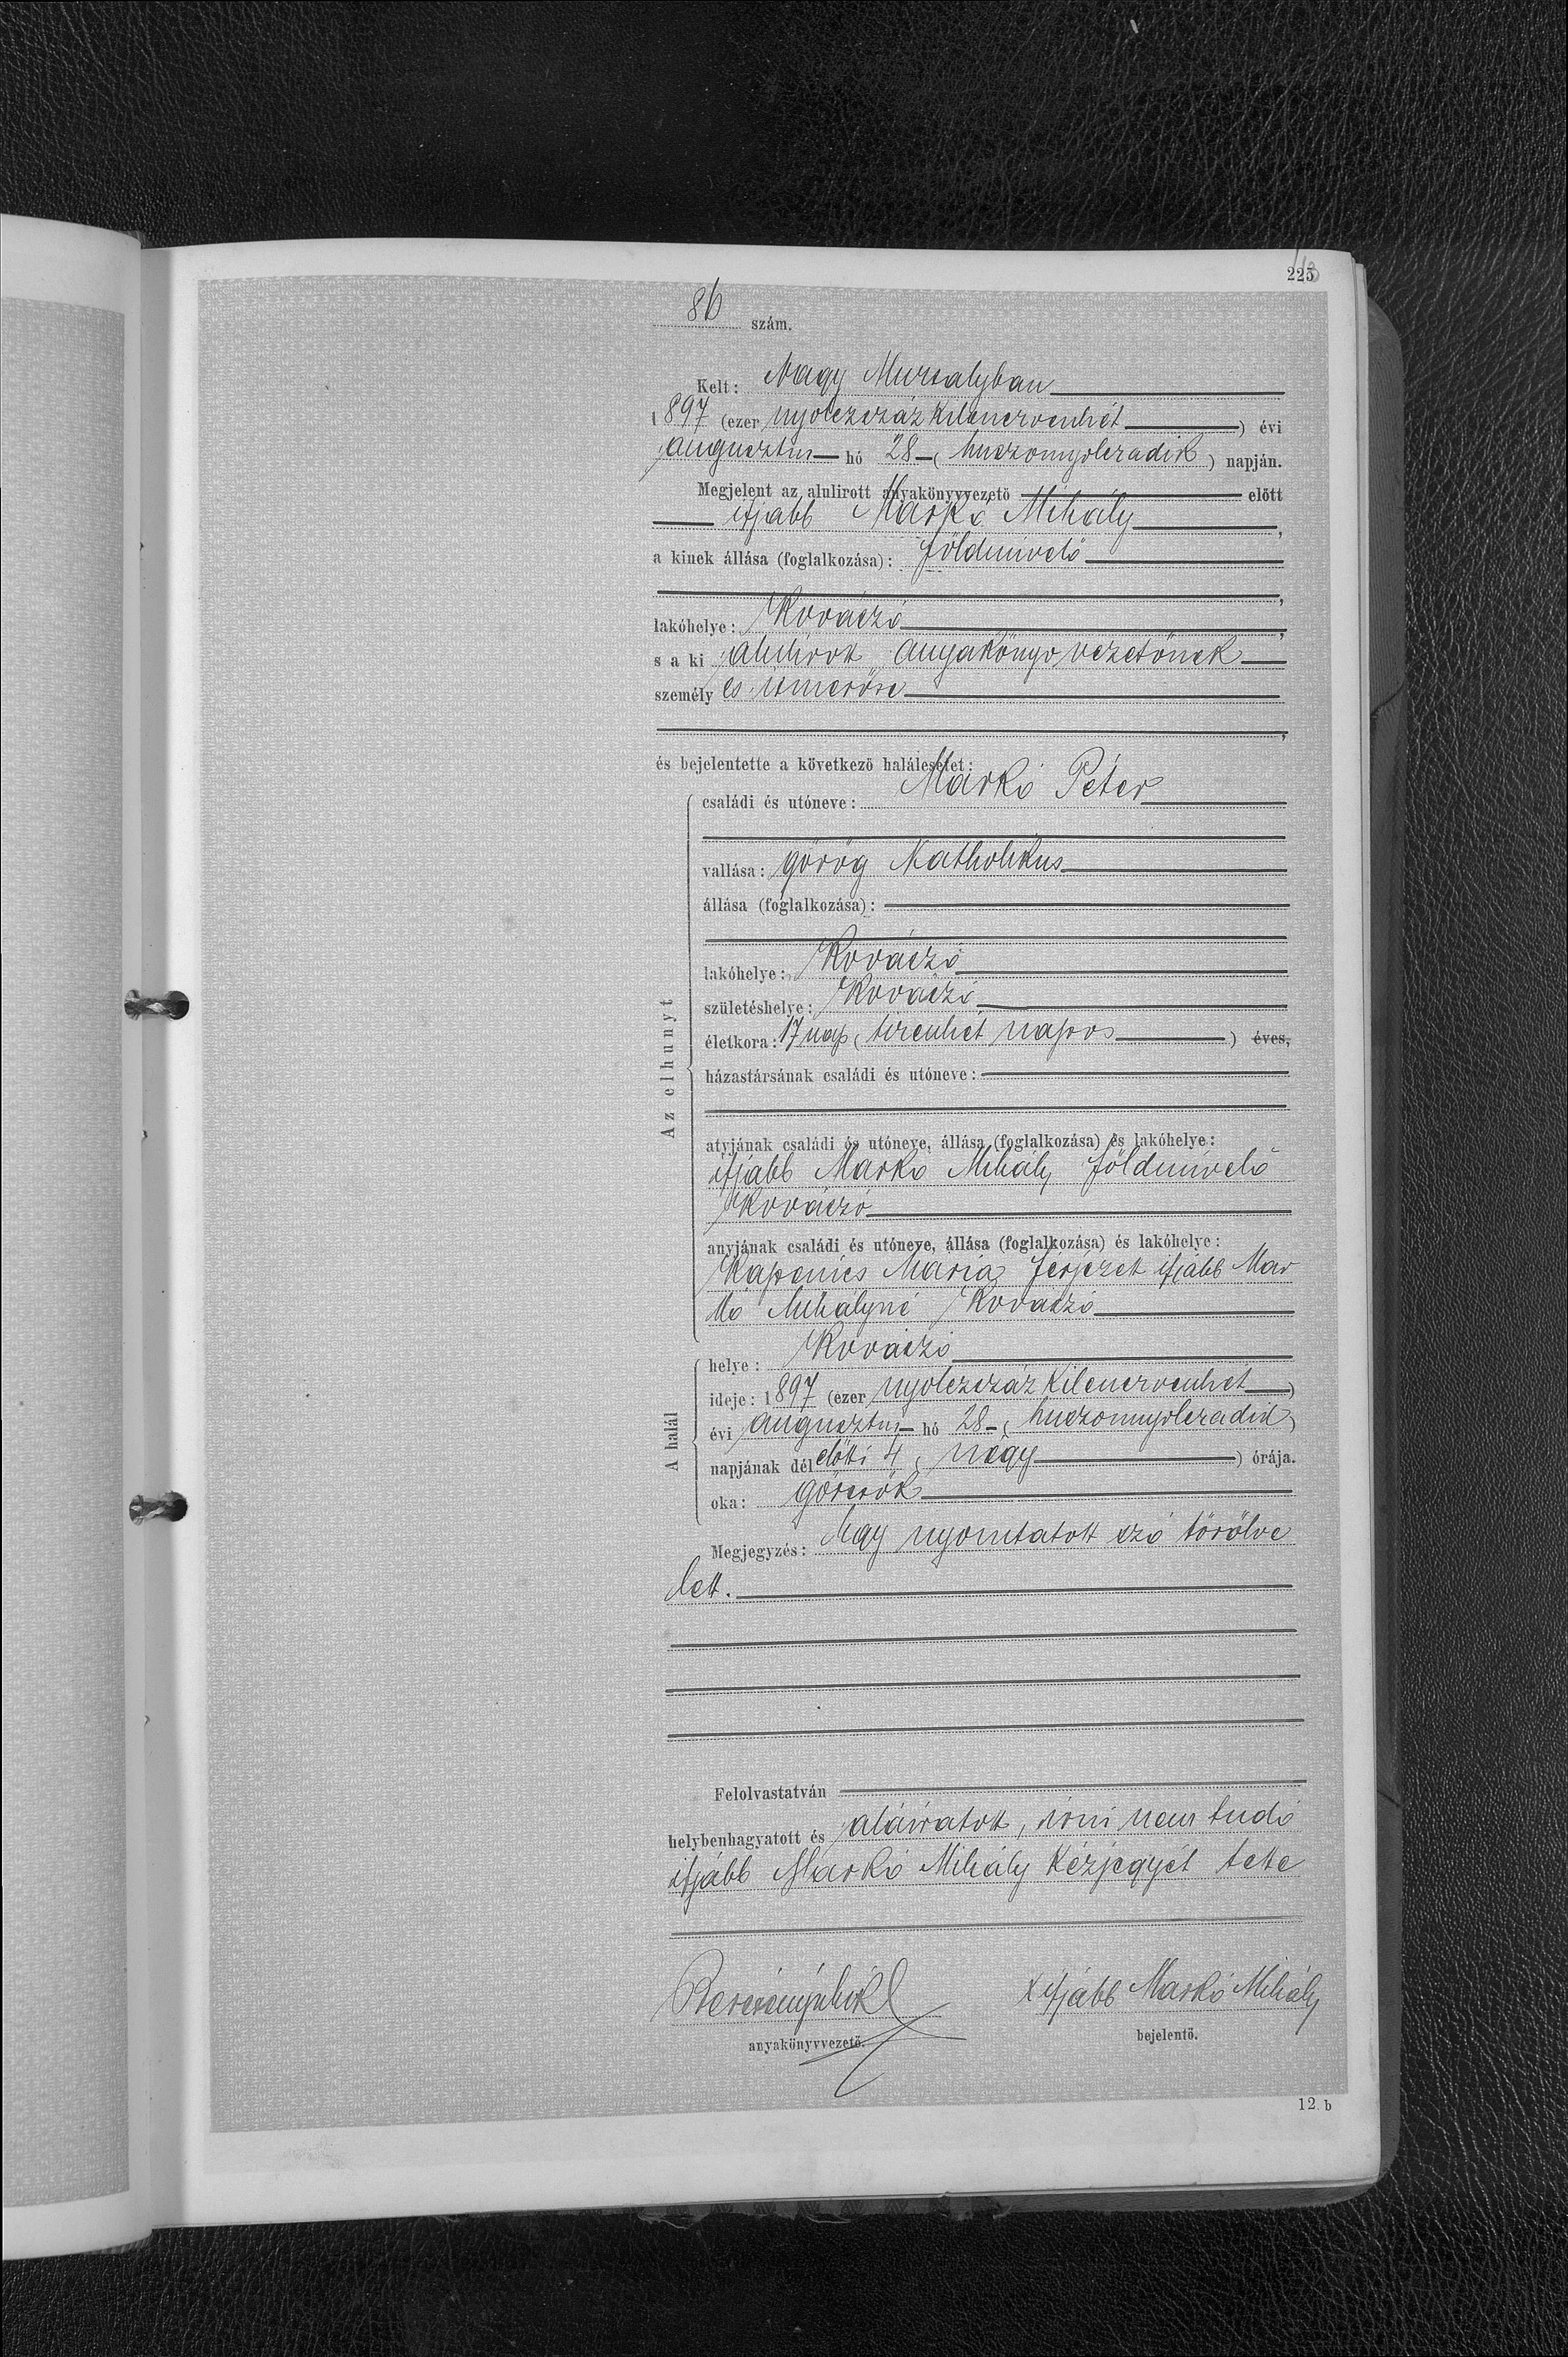 225
86 szám.
Kelt: Nagy Muzsalyban
1897 (ezer nyolczszáz kilenczvenhét) évi
augusztus hó 28 (huszonnyolczadik) napján.
Megjelent az alulirott anyakönyvvezető előtt
ifjabb Markó Mihály,
a kinek állása (foglalkozása): földmivelő
,
lakóhelye: Kovászó,
s a ki alulirott anyakönyvvezetőnek
személyes ismerőse
,
és bejelentette a következő halálesetet:
Az elhunyt
családi és utóneve: Markó Péter
vallása: görög katholikus
állása (foglalkozása):
lakóhelye: Kovászó
születéshelye: Kovászó
életkora: 17 nap (tizenhét napos) éves,
házastársának családi és utóneve:
atyjának családi és utóneve, állása (foglalkozása) és lakóhelye:
ifjabb Markó Mihály földmivelő
Kovászó
anyjának családi és utóneve, állása (foglalkozása) és lakóhelye:
Mária férjezett ifjabb Mar
kó Mihályné Kovászó
A halál
helye: Kovászó
ideje: 1897 (ezer nyolczszáz kilenczvenhét)
évi augusztus hó 28 (huszonnyolczadik)
napjának délelőtti 4 (négy) órája.
oka: görcsök
Megjegyzés: Egy nyomtatott szó törölve
lett.
Felolvastatván
helybenhagyatott és aláiratott, irni nem tudó
ifjabb Markó Mihály kézjegyét tette
x ifjabb Markó Mihály
anyakönyvvezető.
bejelentő.
12. b